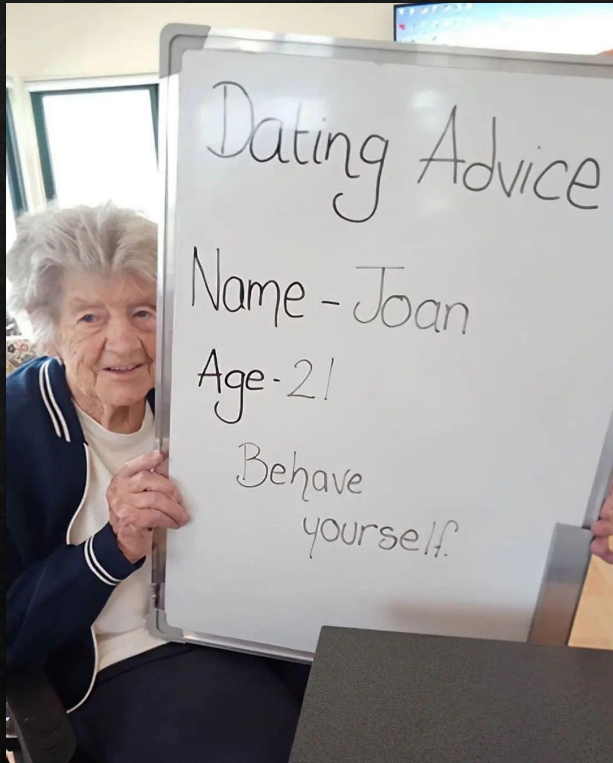 Dating Advice
Name - Joan
Age - 21
Behave
yourself.